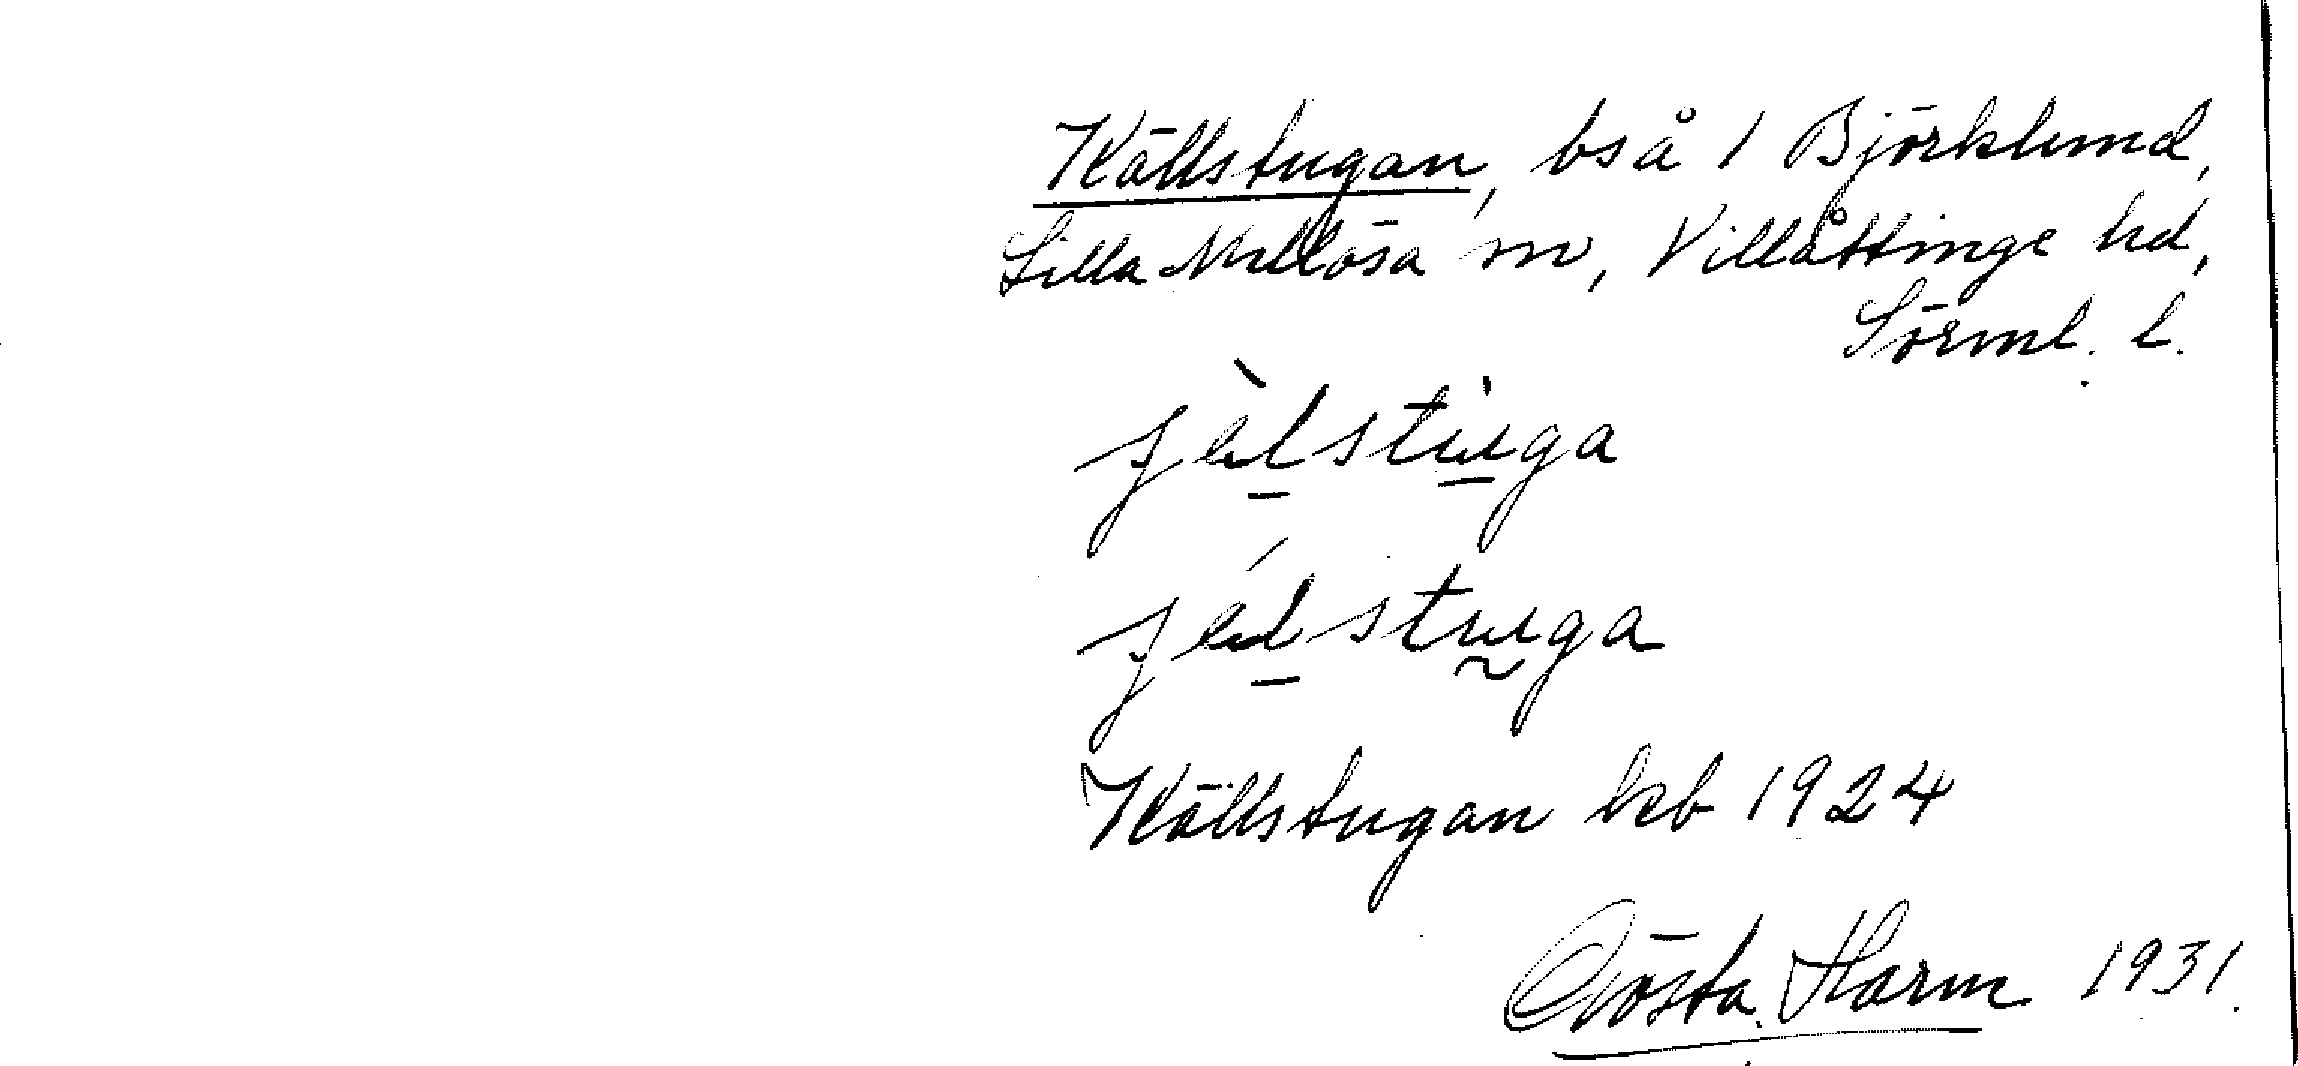 Källstugan, bså 1 Björklund,
Lilla Mellösa sn, Villåttinge hd,
Sörml. l.
Källstugan kb 1924
Gösta Harm 1931.